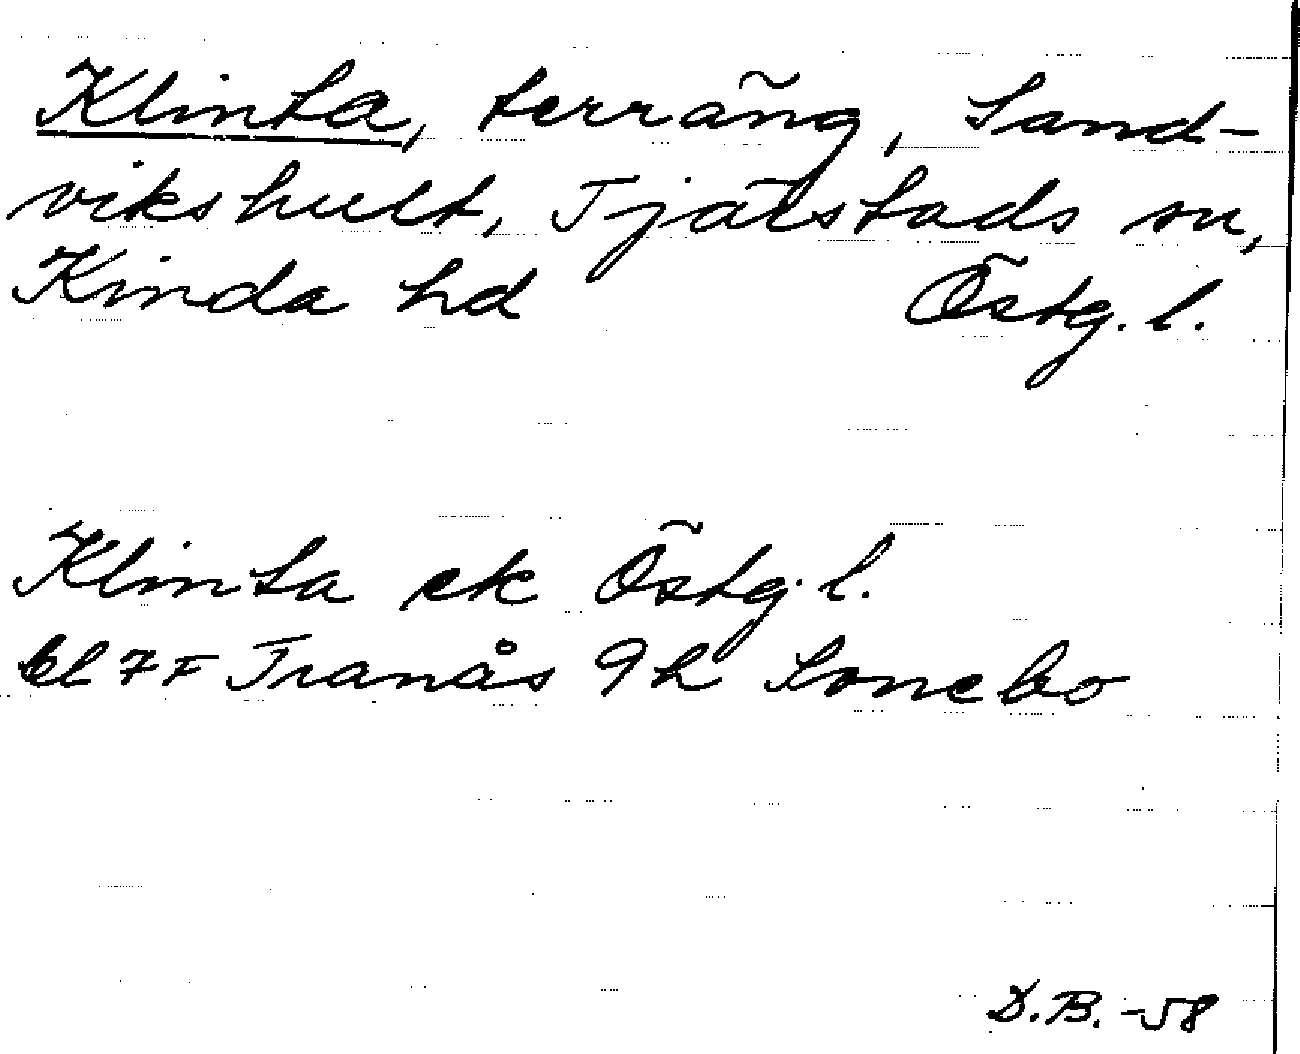 Klinta, terräng, Sand-
vikshult, Tjärstads sn,
Kinda hd Östg. l.
Klinta ek Östg. l.
bl 7F Tranås 9h Sonebo
D.B. -58